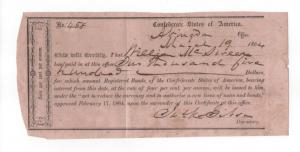 No. 458
Confederate States of America.
Abingdon Office
March 19 1864
This will Certify, That William
has paid in at this office One Thousand five
hundred Dollars,
for which amount Registered Bonds of the Confederate States of America, bearing
interest from this date, at the rate of four per cent. per annum, will be issued to him
under the "act to reduce the currency and to authorise a new issue of notes and bonds,"
approved February 17, 1864, upon the surrender of this Certificate at this office.
Depositary.